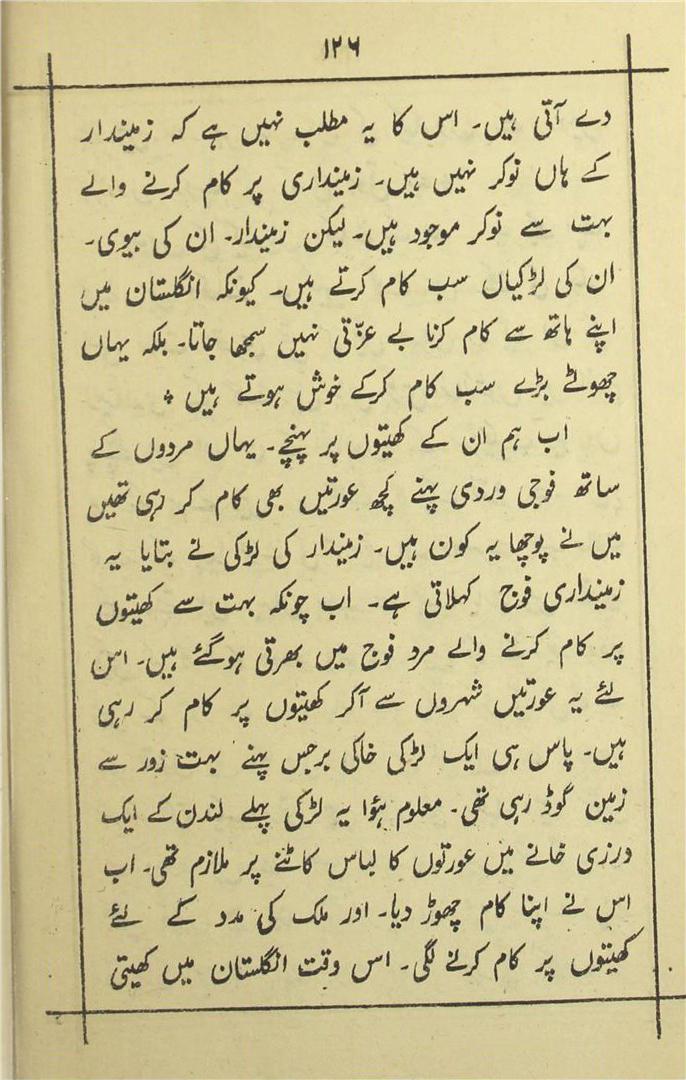 ۱۲۶
دے آتی ہیں۔ اس کا یہ مطلب نہیں ہے کہ زمیندار
کے ہاں نوکر نہیں ہیں۔ زمینداری پر کام کرنے والے
بہت سے نوکر موجود ہیں۔ لیکن زمیندار۔ ان کی بیوی۔
ان کی لڑکیاں سب کام کرتے ہیں۔ کیونکہ انگلستان میں
اپنے ہاتھ سے کام کرنا بے عزّتی نہیں سمجھا جاتا۔ بلکہ یہاں
چھوٹے بڑے سب کام کرکے خوش ہوتے ہیں ٭
اب ہم ان کے کھیتوں پر پہنچے۔ یہاں مردوں کے
ساتھ فوجی وردی پہنے کچھ عورتیں بھی کام کر رہی تھیں
میں نے پوچھا یہ کون ہیں۔ زمیندار کی لڑکی نے بتایا یہ
زمینداری فوج کہلاتی ہے۔ اب چونکہ بہت سے کھیتوں
پر کام کرنے والے مرد فوج میں بھرتی ہوگئے ہیں۔ اس
لئے یہ عورتیں شہروں سے آکر کھیتوں پر کام کر رہی
ہیں۔ پاس ہی ایک لڑکی خاکی برجس پہنے بہت زور سے
زمین گوڈ رہی تھی۔ معلوم ہؤا یہ لڑکی پہلے لندن کے ایک
درزی خانے میں عورتوں کا لباس کاٹنے پر ملازم تھی۔ اب
اس نے اپنا کام چھوڑ دیا۔ اور ملک کی مدد کے لئے
کھیتوں پر کام کرنے لگی۔ اس وقت انگلستان میں کھیتی